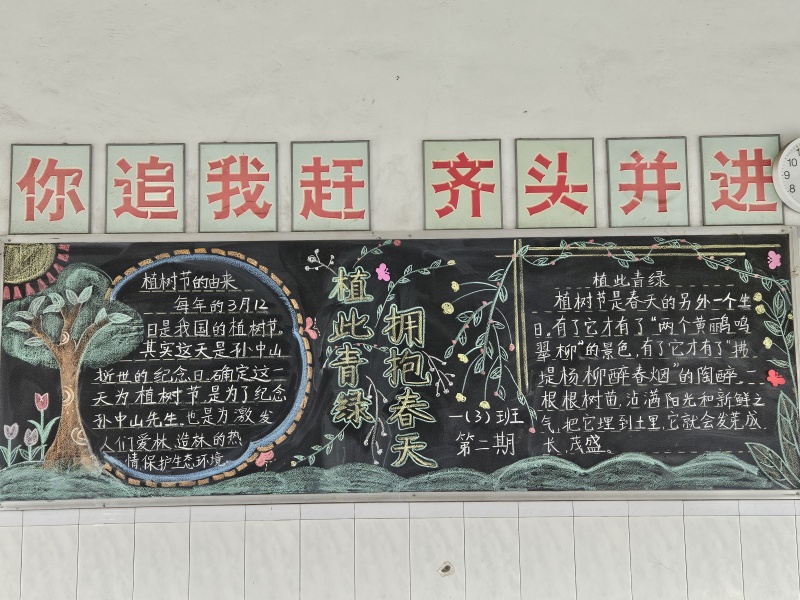 你追我赶 齐头并进
10
9
8
植树节的由来
每年的3月12
日是我国的植树节.
其实这天是孙中山
逝世的纪念日.确定这一
天为植树节是为了纪念
孙中山先生.也是为激发
人们爱林、造林的热
情保护生态环境.
植此青绿
拥抱春天
一(3)班
第二期
植此青绿
植树节是春天的另外一个生
日,有了它才有了“两个黄鹂鸣
翠柳”的景色,有了它才有了“拂
堤杨柳醉春烟”的陶醉.一
根根树苗,沾满阳光和新鲜空
气,把它埋到土里,它就会发芽成
长,茂盛。